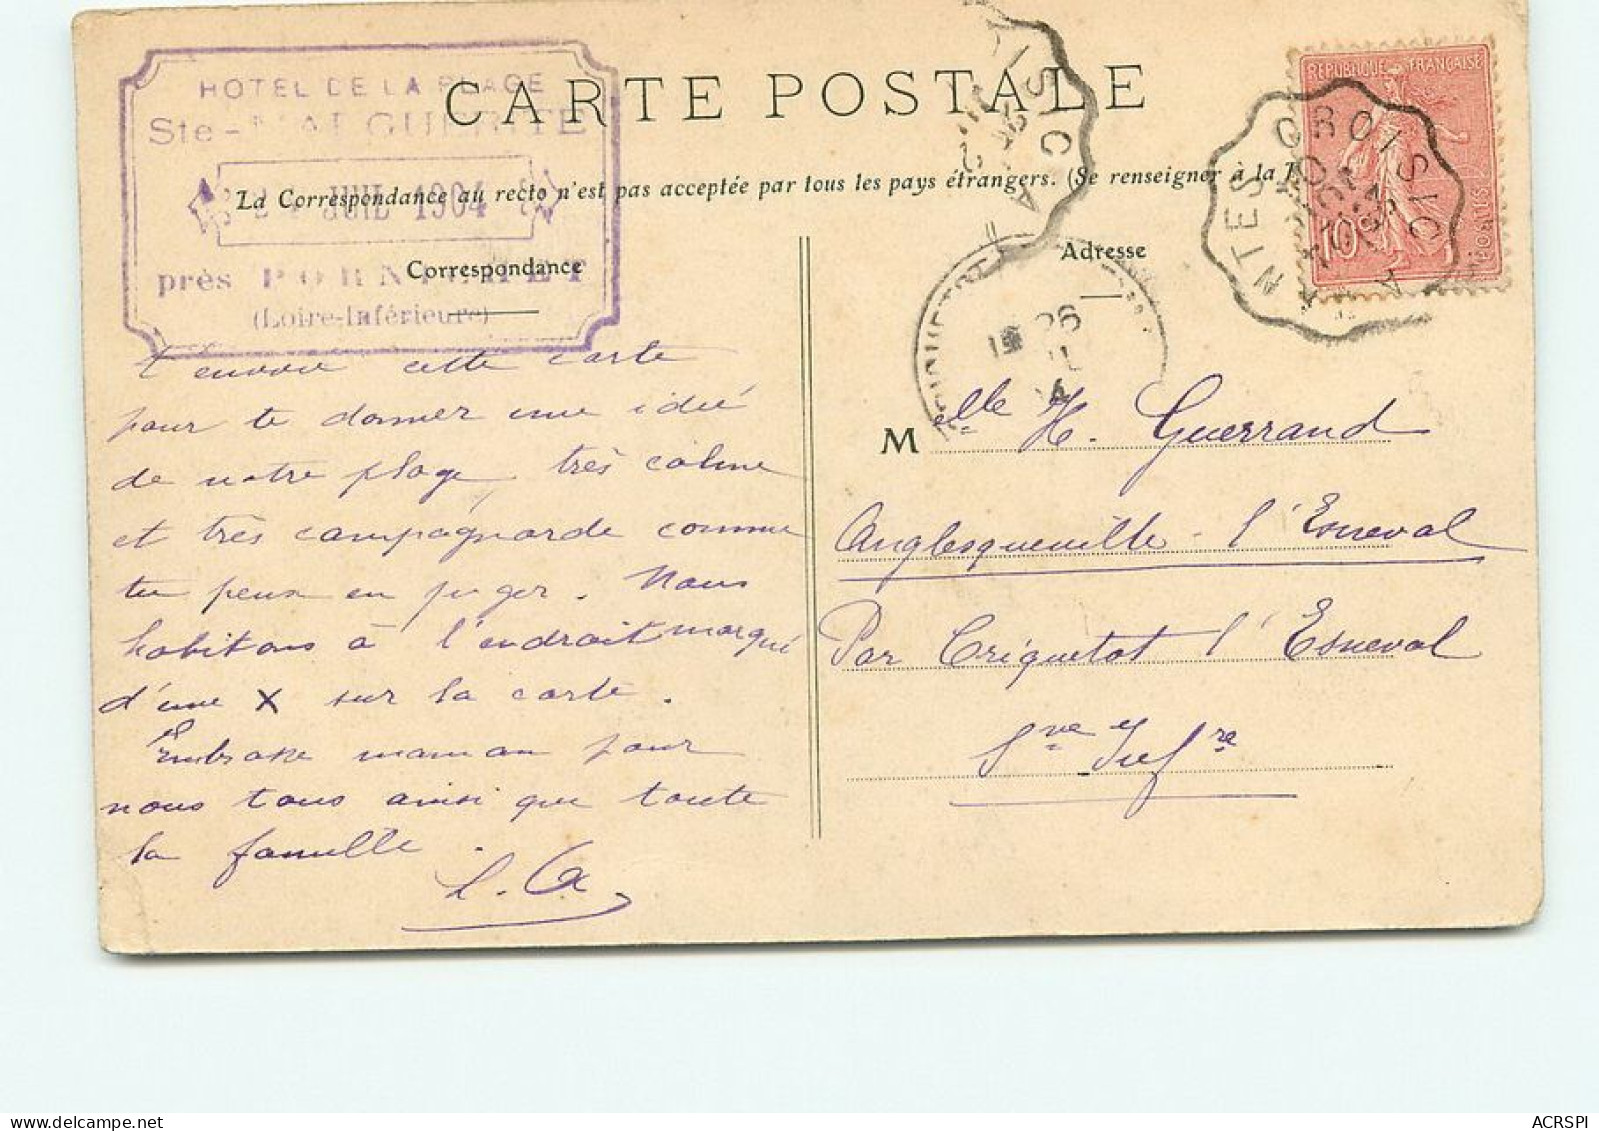 HOTEL DE LA PLAGE
Ste-MARGUERITE
24 JUIL 1904
près PORNICHET
(Loire-Inférieure)
CARTE POSTALE
La Correspondance au recto n'est pas acceptée par tous les pays étrangers. (Se renseigner à la
Correspondance
t'envoie cette carte
pour te donner une idée
de notre plage, très calme
et très campagnarde comme
tu peux en juger. Nous
habitons à l'endroit marqué
d'une X sur la carte.
Embrasse maman pour
nous tous ainsi que toute
la famille.
RÉPUBLIQUE FRANÇAISE
10
POSTES
CROISIC A NTES
Adresse
Melle H. Guerrand
Anglesqueville-l'Esneval
Par Criquetot l'Esneval
Sne Infre
ACRSPI